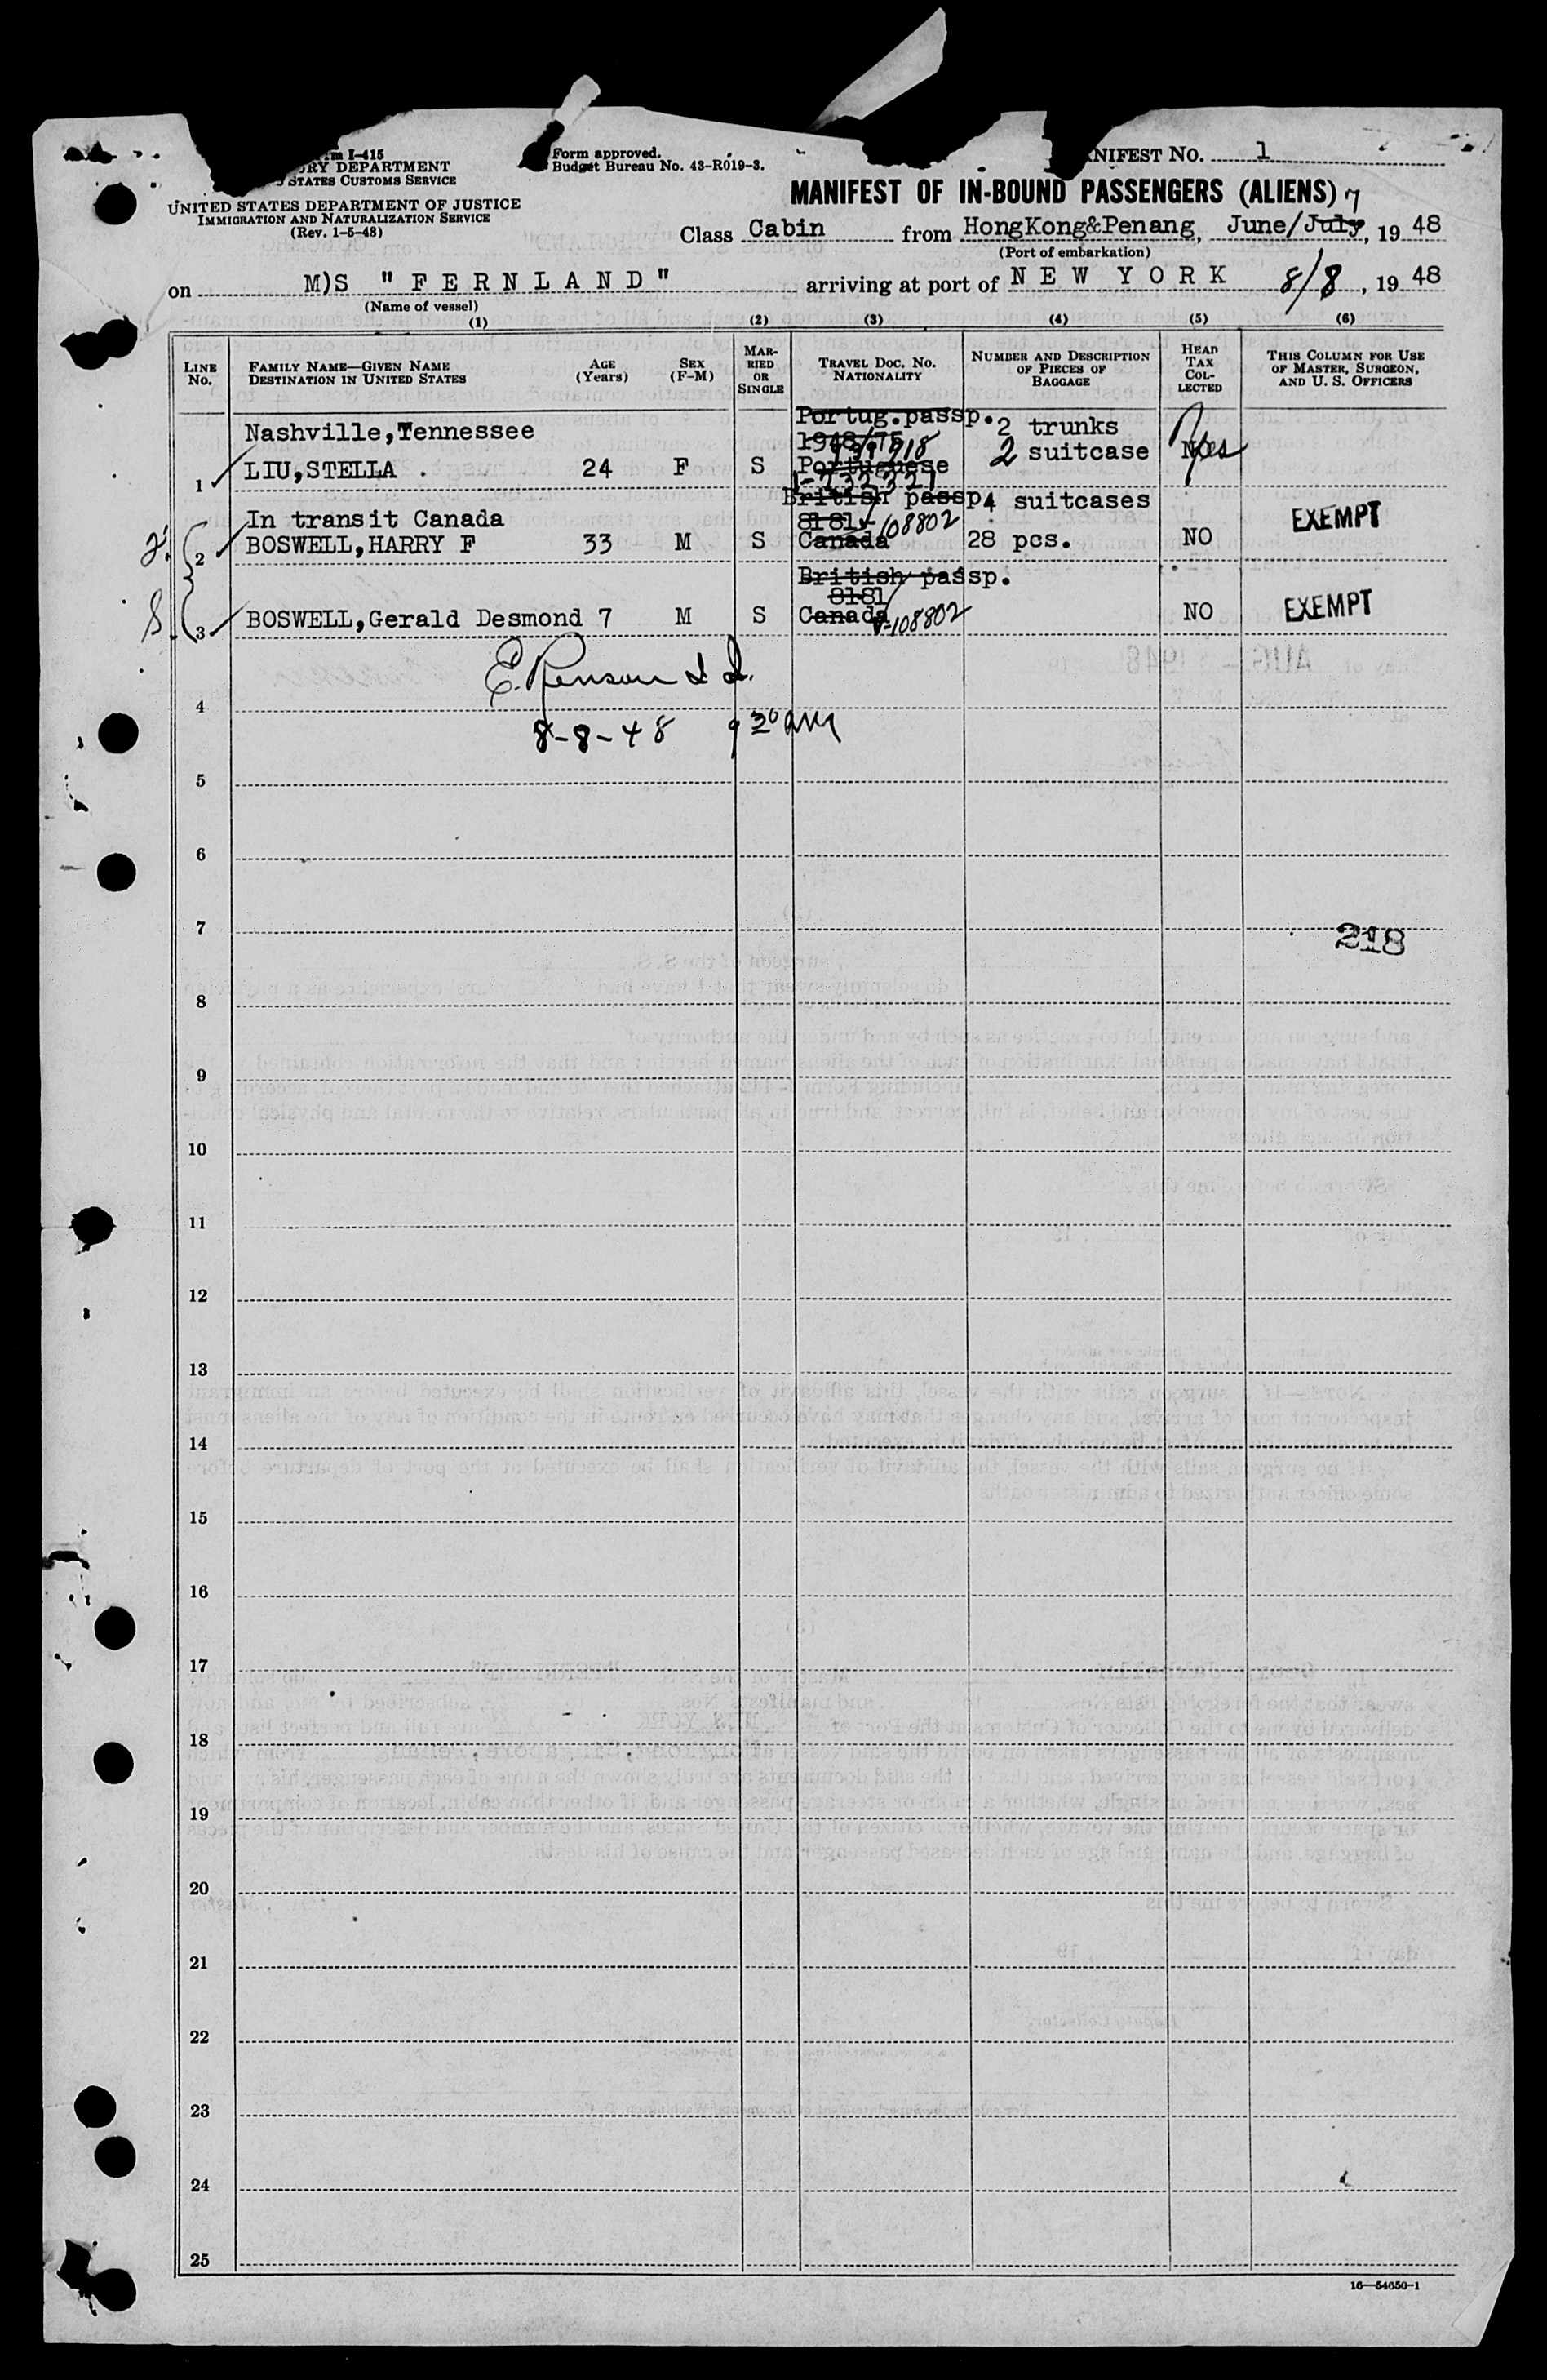 m I-415
RY DEPARTMENT
STATES CUSTOMS SERVICE
UNITED STATES DEPARTMENT OF JUSTICE
IMMIGRATION AND NATURALIZATION SERVICE
(Rev. 1-5-48)
Form approved.
Budget Bureau No. 43-R019-3.
NIFEST NO. 1
MANIFEST OF IN-BOUND PASSENGERS (ALIENS)
Class Cabin from HongKong&Penang, June/July, 19 48
(Port of embarkation)
on M)S "FERNLAND" arriving at port of NEW YORK 8/8, 19 48
(Name of vessel)
(1) (2) (3) (4) (5) (6)
LINE NO. FAMILY NAME—GIVEN NAME DESTINATION IN UNITED STATES AGE (Years) SEX (F-M) MARRIED OR SINGLE TRAVEL DOC. NO. NATIONALITY NUMBER AND DESCRIPTION OF PIECES OF BAGGAGE HEAD TAX COLLECTED THIS COLUMN FOR USE OF MASTER, SURGEON, AND U. S. OFFICERS
Portug.passp. 2 trunks
Nashville,Tennessee 1948/75
2 suitcase Yes
1 LIU,STELLA . 24 F S Portuguese
I-232321
British passp 4 suitcases
In transit Canada 8181 V-108802 EXEMPT
2 BOSWELL,HARRY F 33 M S Canada 28 pcs. NO
British passp.
8181
3 BOSWELL,Gerald Desmond 7 M S Canada V-108802 NO EXEMPT
4
8-8-48 9 30 AM
5
6
7
218
8
9
10
11
12
13
14
15
16
17
18
19
20
21
22
23
24
25
16—54650-1